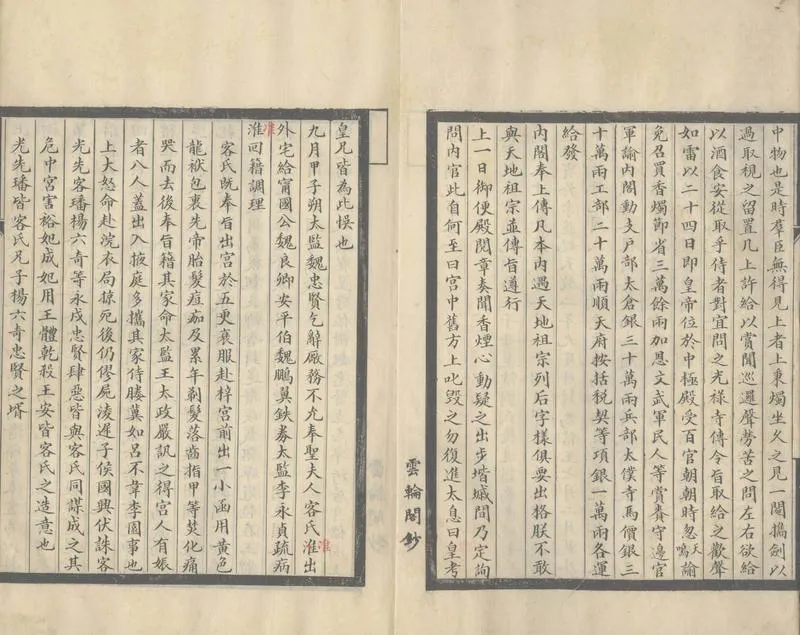 中物也是時羣臣無得見上者上秉燭坐久之見一閹攜劍以
過取視之留置几上許給以賞聞巡邏聲勞苦之問左右欲給
以酒食安從取乎侍者對宜問之光禄寺傳令旨取給之歡聲
如雷以二十四日即皇帝位於中極殿受百官朝朝時忽天鳴諭
免召買香燭節省三萬餘兩加恩文武軍民人等賞賚守邊官
軍諭內閣動支戶部太倉銀三十萬兩兵部太僕寺馬價銀三
十萬兩工部二十萬兩順天府按括稅契等項銀一萬兩各運
給發
內閣奉上傳凡本內遇天地祖宗列后字樣俱要出格朕不敢
與天地祖宗並傳旨遵行
上一日御便殿閱章奏聞香煙心動疑之出步堦墄間乃定詢
問內官此自何至曰宮中舊方上叱毀之勿復進太息曰皇考
雲輪閣鈔
皇兄皆為此悮也
九月甲子朔太監魏忠賢乞辭廠務不允奉聖夫人客氏淮出
准
外宅給甯國公魏良卿安平伯魏鵬翼鉄券太監李永貞疏病
准
淮回籍調理
客氏既奉旨出宮於五更衰服赴梓宮前出一小函用黃色
龍袱包裹先帝胎髮痘痂及累年剃髮落齒指甲等焚化痛
哭而去後奉旨籍其家命太監王太政嚴訊之得宮人有娠
者八人蓋出入掖庭多攜其家侍媵冀如呂不韋李園事也
上大怒命赴浣衣局掠死後仍僇屍淩遲子侯國興伏誅客
光先客璠楊六奇等永戍忠賢肆惡皆與客氏同謀成之其
危中宮害裕妃成妃用王體乾殺王安皆客氏之造意也
光先璠皆客氏兄子楊六奇忠賢之壻